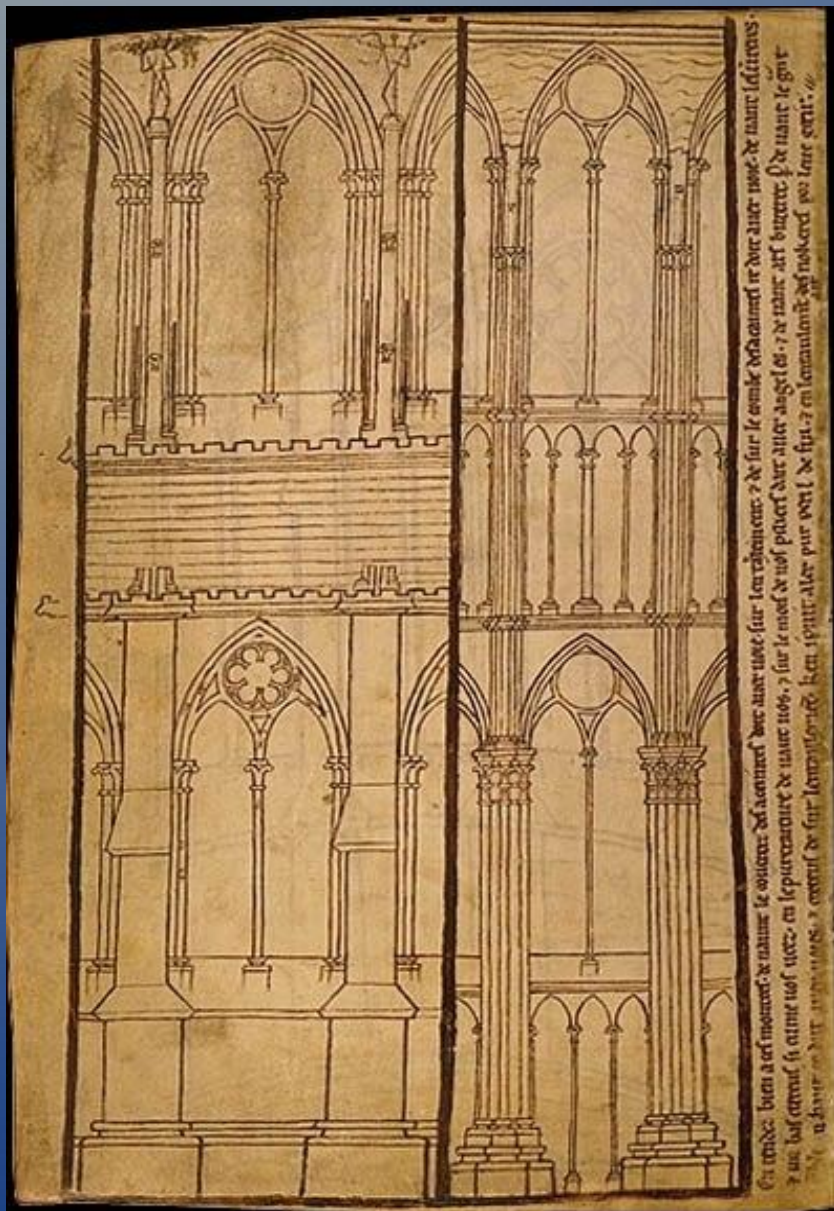 En tendez bien a ces montees. de uant le couertic des acainnes doit auer uoie sur lentaulement. 7 de sur le comble des acainnes re doit auer uoie. de uant les uerrieres.
7 uns bas creteus si cume uos ueez. en le purtraiture de uant uos. 7 sur le mors de uos pilers doit auer angeles. 7 de uant ars buterez. p de uant le grant
en haut re doit auer uoies. 7 creteus de sur lentaulement. ken i puist aler pur peril de fu. 7 en lentaulement ait nokeres por leue getir.